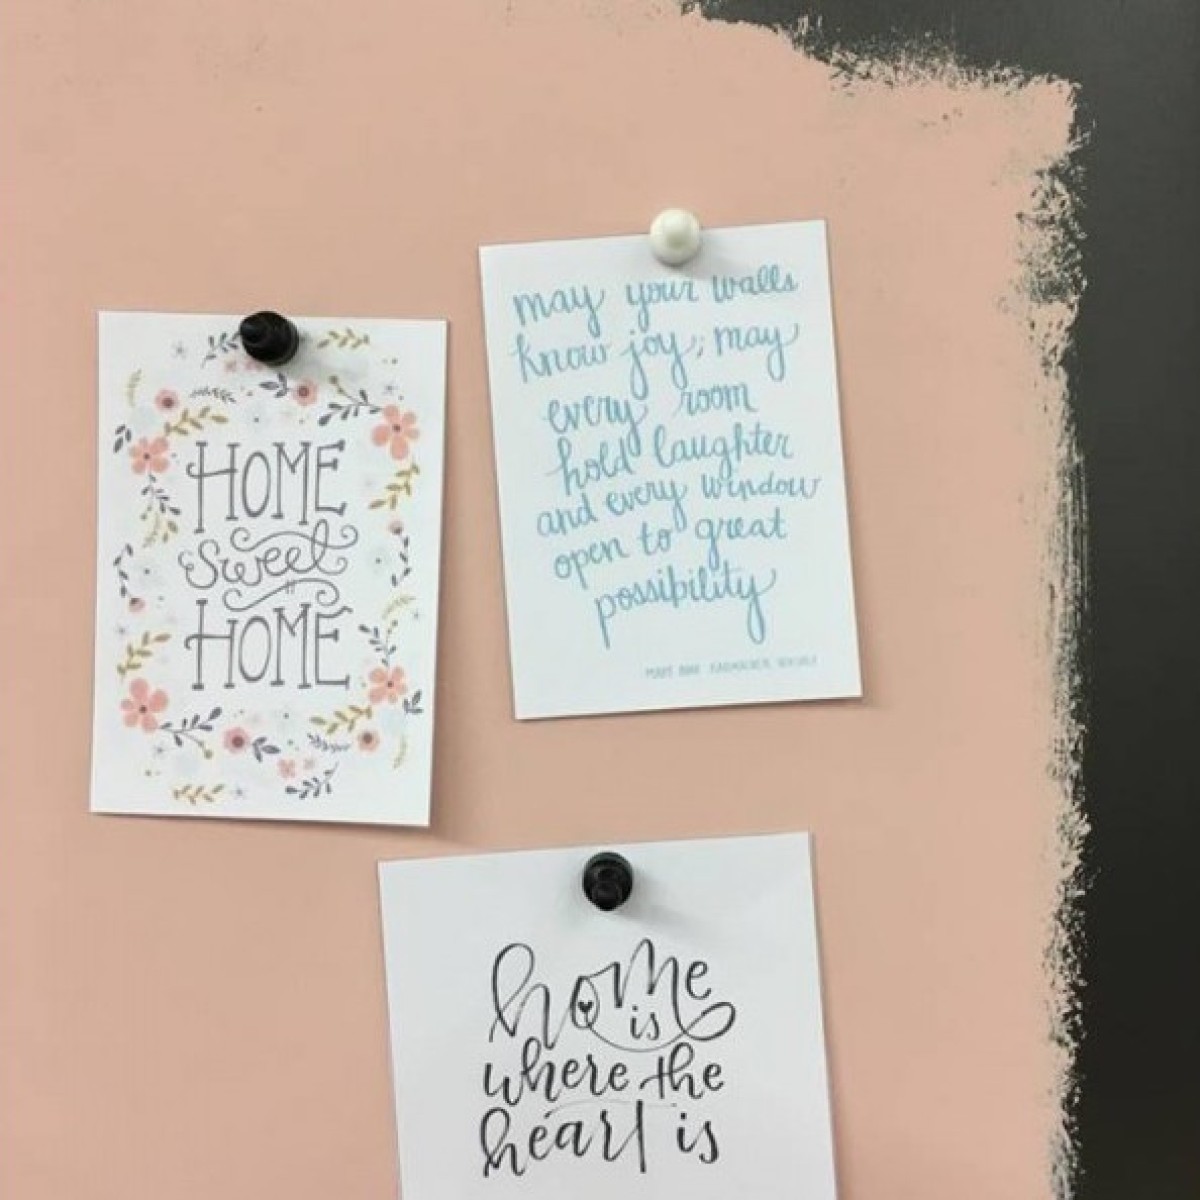 HOME
sweet
HOME
may your walls
know joy; may
every room
hold laughter
and every window
open to great
possibility
home
is
where the
heart is